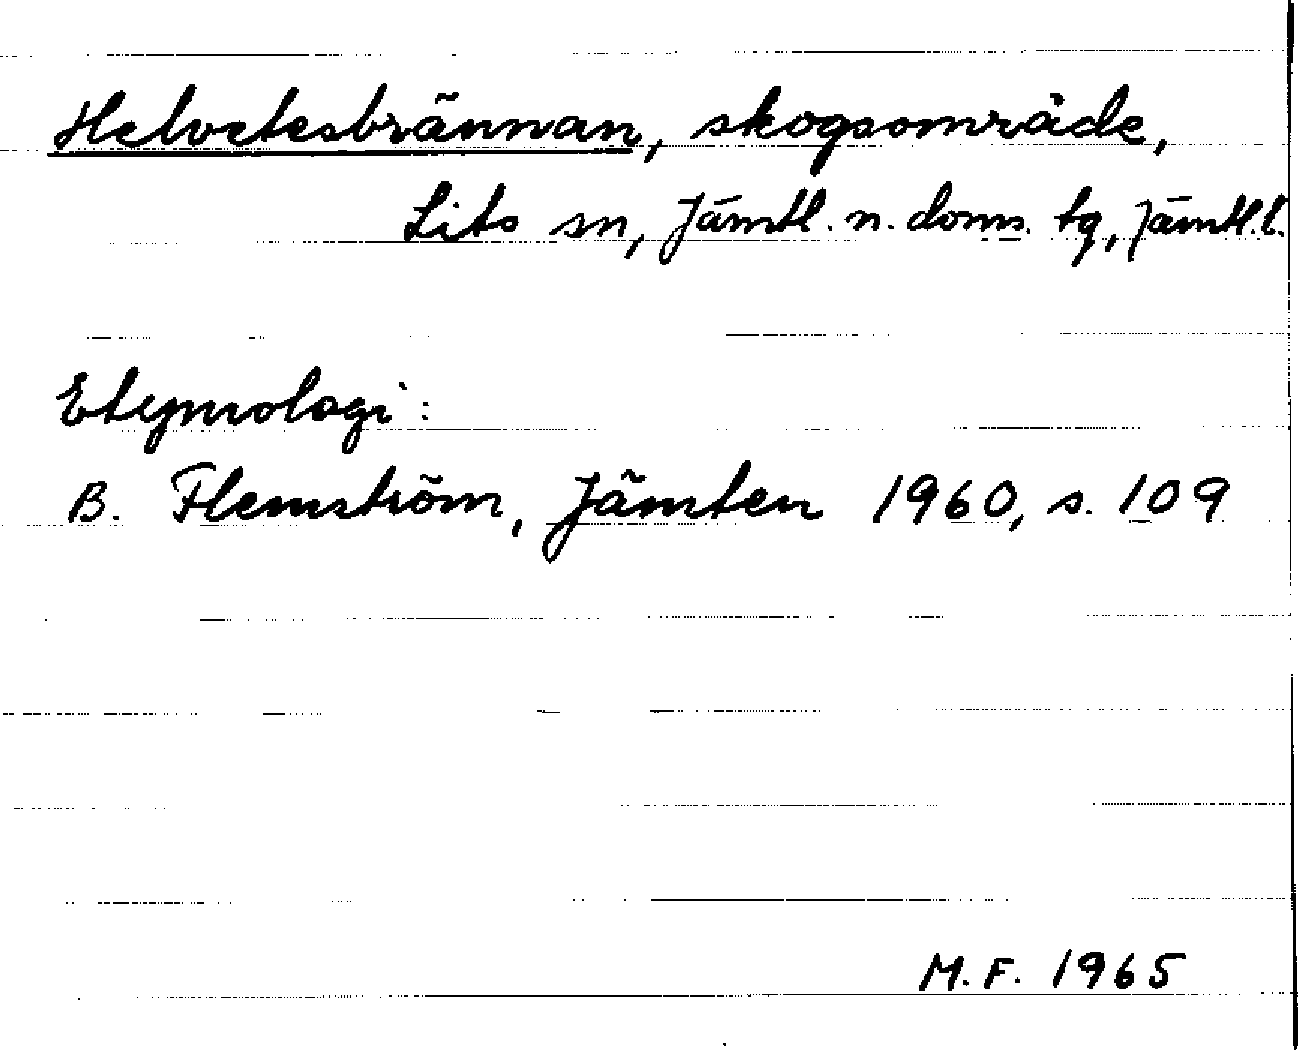 Helvetesbrännan, skogsområde,
Lits sn, Jämtl. n. doms. tg, Jämtl. l.
Etymologi:
B. Flemström, Jämten 1960, s. 109
M.F. 1965